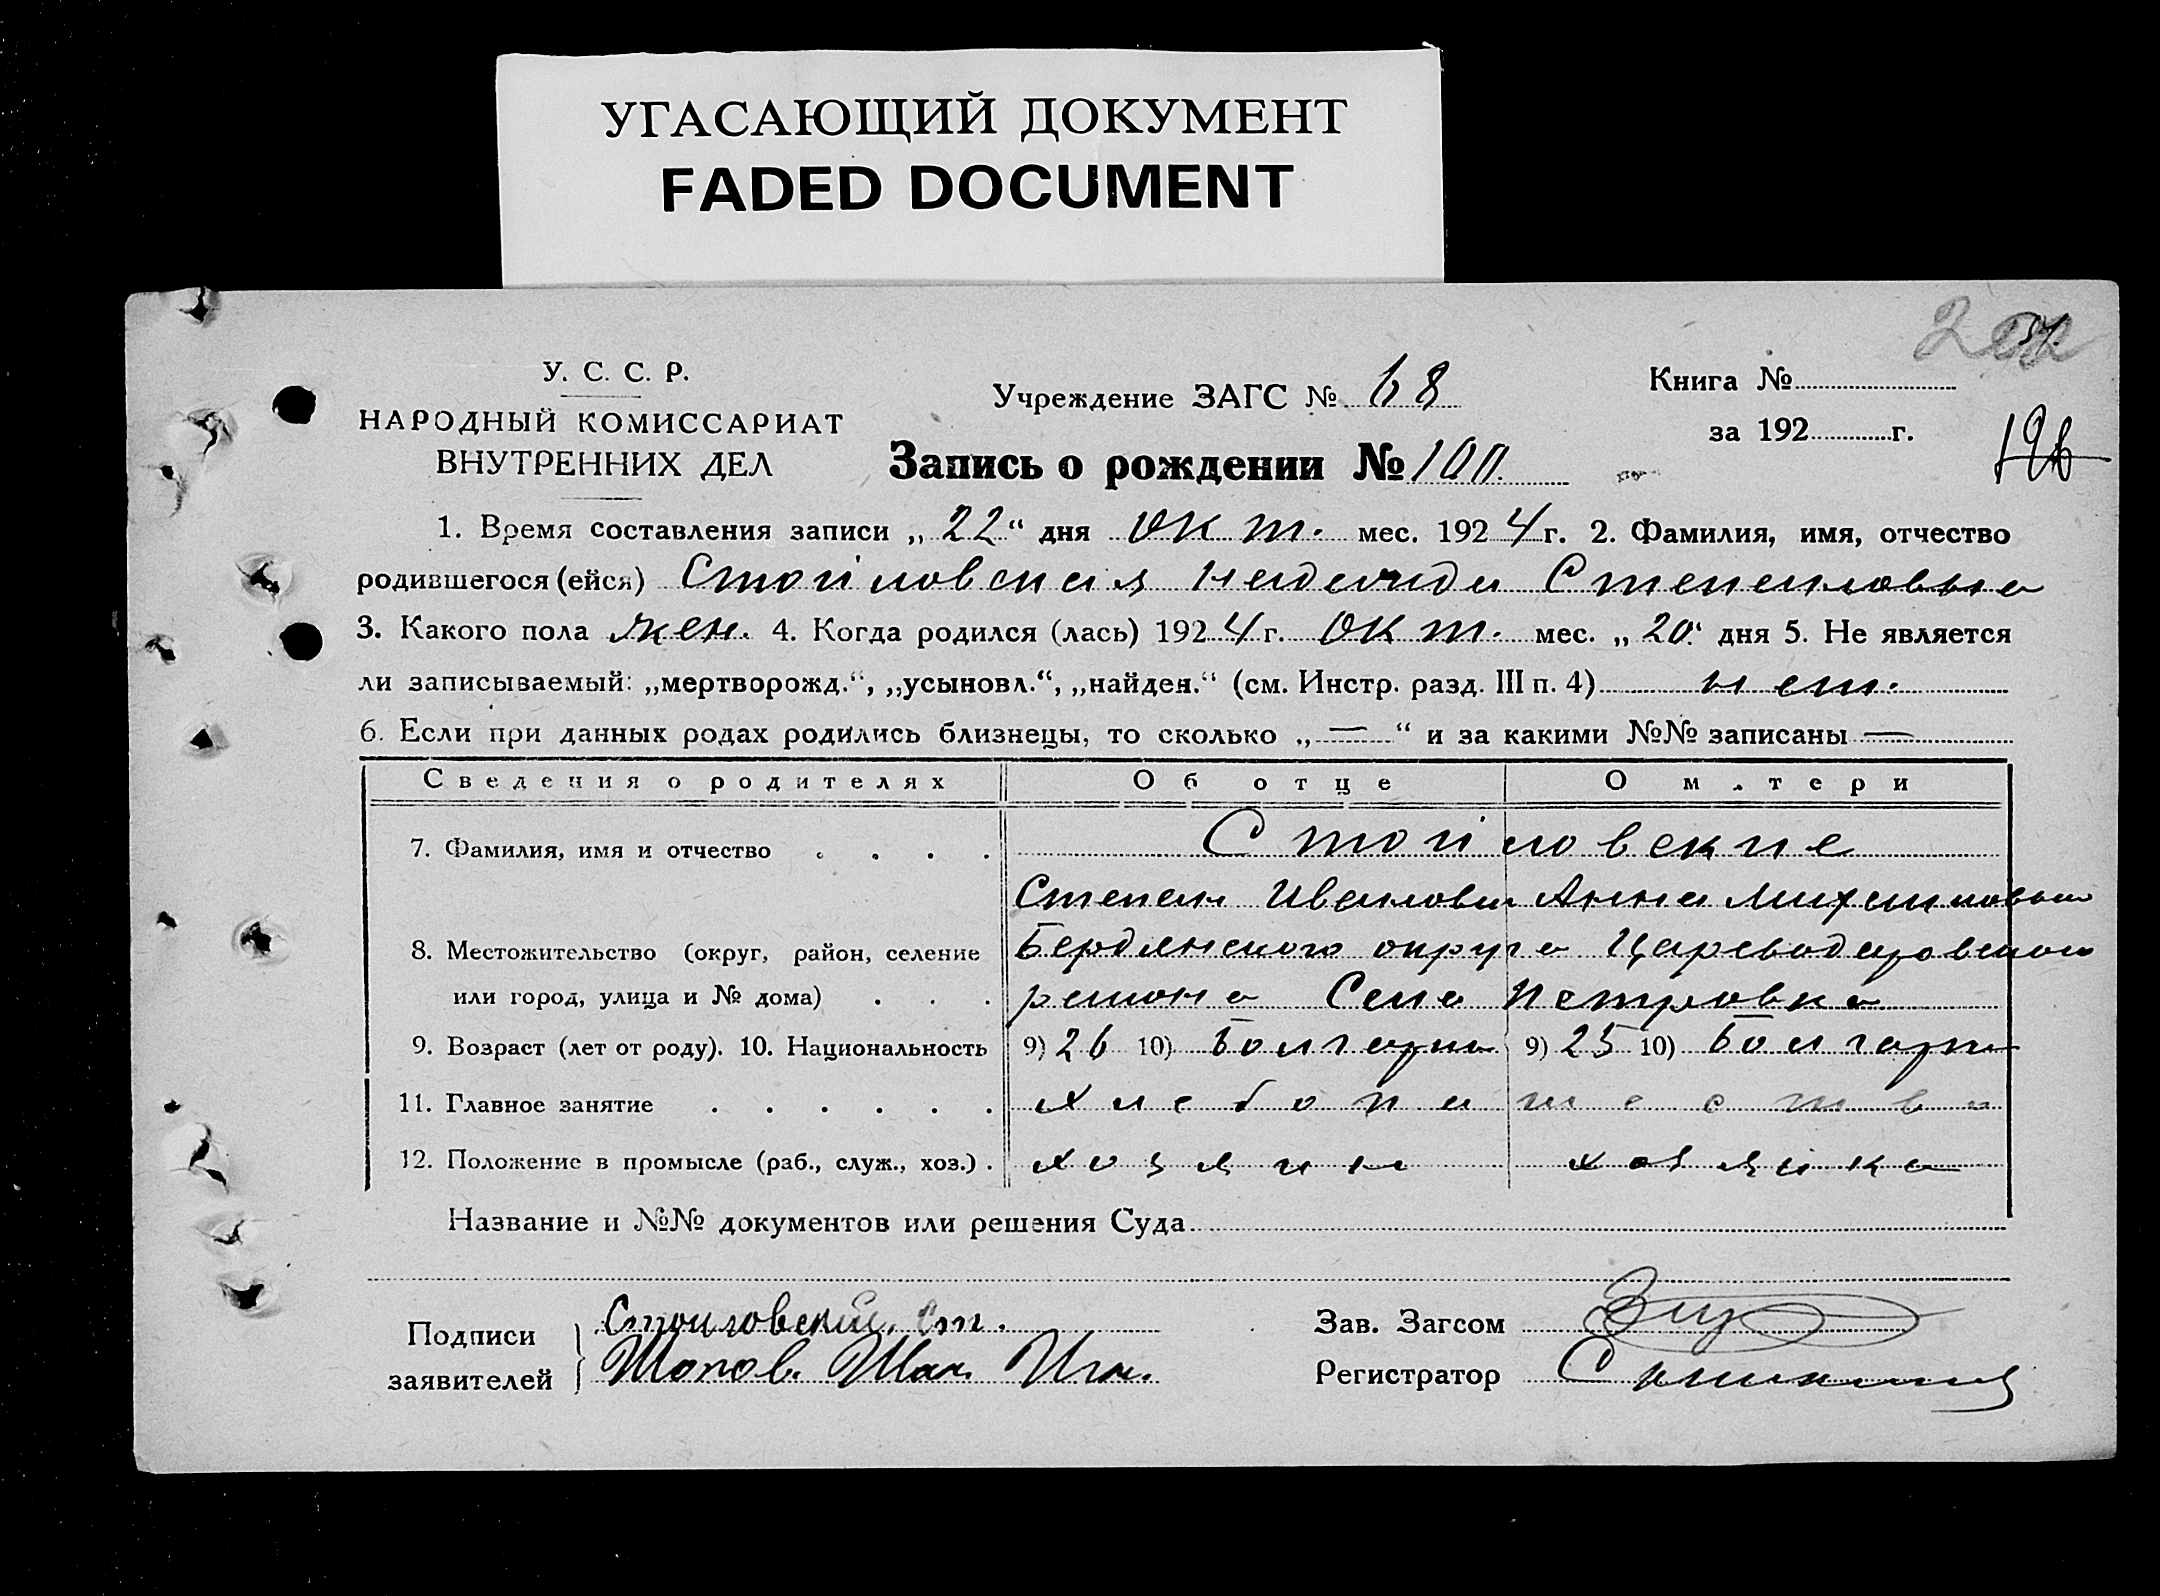 УГАСАЮЩИЙ ДОКУМЕНТ
FADED DOCUMENT
У. С. С. Р.
НАРОДНЫЙ КОМИССАРИАТ
ВНУТРЕННИХ ДЕЛ
Учреждение ЗАГС № 68
Книга №
за 192 г.
Запись о рождении №
1. Время составления записи „22“ дня окт. мес. 1924 г. 2. Фамилия, имя, отчество
родившегося (ейся) Стойловская Надежда Степановна
3. Какого пола жен. 4. Когда родился (лась) 1924 г. окт. мес. „20“ дня 5. Не является
ли записываемый: „мертворожд.“, „усыновл.“, „найден.“ (см. Инстр. разд. III п. 4) нет.
6. Если при данных родах родились близнецы, то сколько „—“ и за какими №№ записаны —
Сведения о родителях Об отце О матери
7. Фамилия, имя и отчество . . . . Стойловские
Степан Иванович Анна Михайловна
8. Местожительство (округ, район, селение Бердянского округа Цареводаровского
или город, улица и № дома) . . . района Село Петровка
9. Возраст (лет от роду). 10. Национальность 9) 26 10) Болгары 9) 25 10) Болгары
11. Главное занятие . . . . . . Хлебопашество
12. Положение в промысле (раб., служ., хоз.) . хозяин хозяйка
Название и №№ документов или решения Суда
Подписи заявителей } Стоиловский Ст.
Зав. Загсом
Регистратор